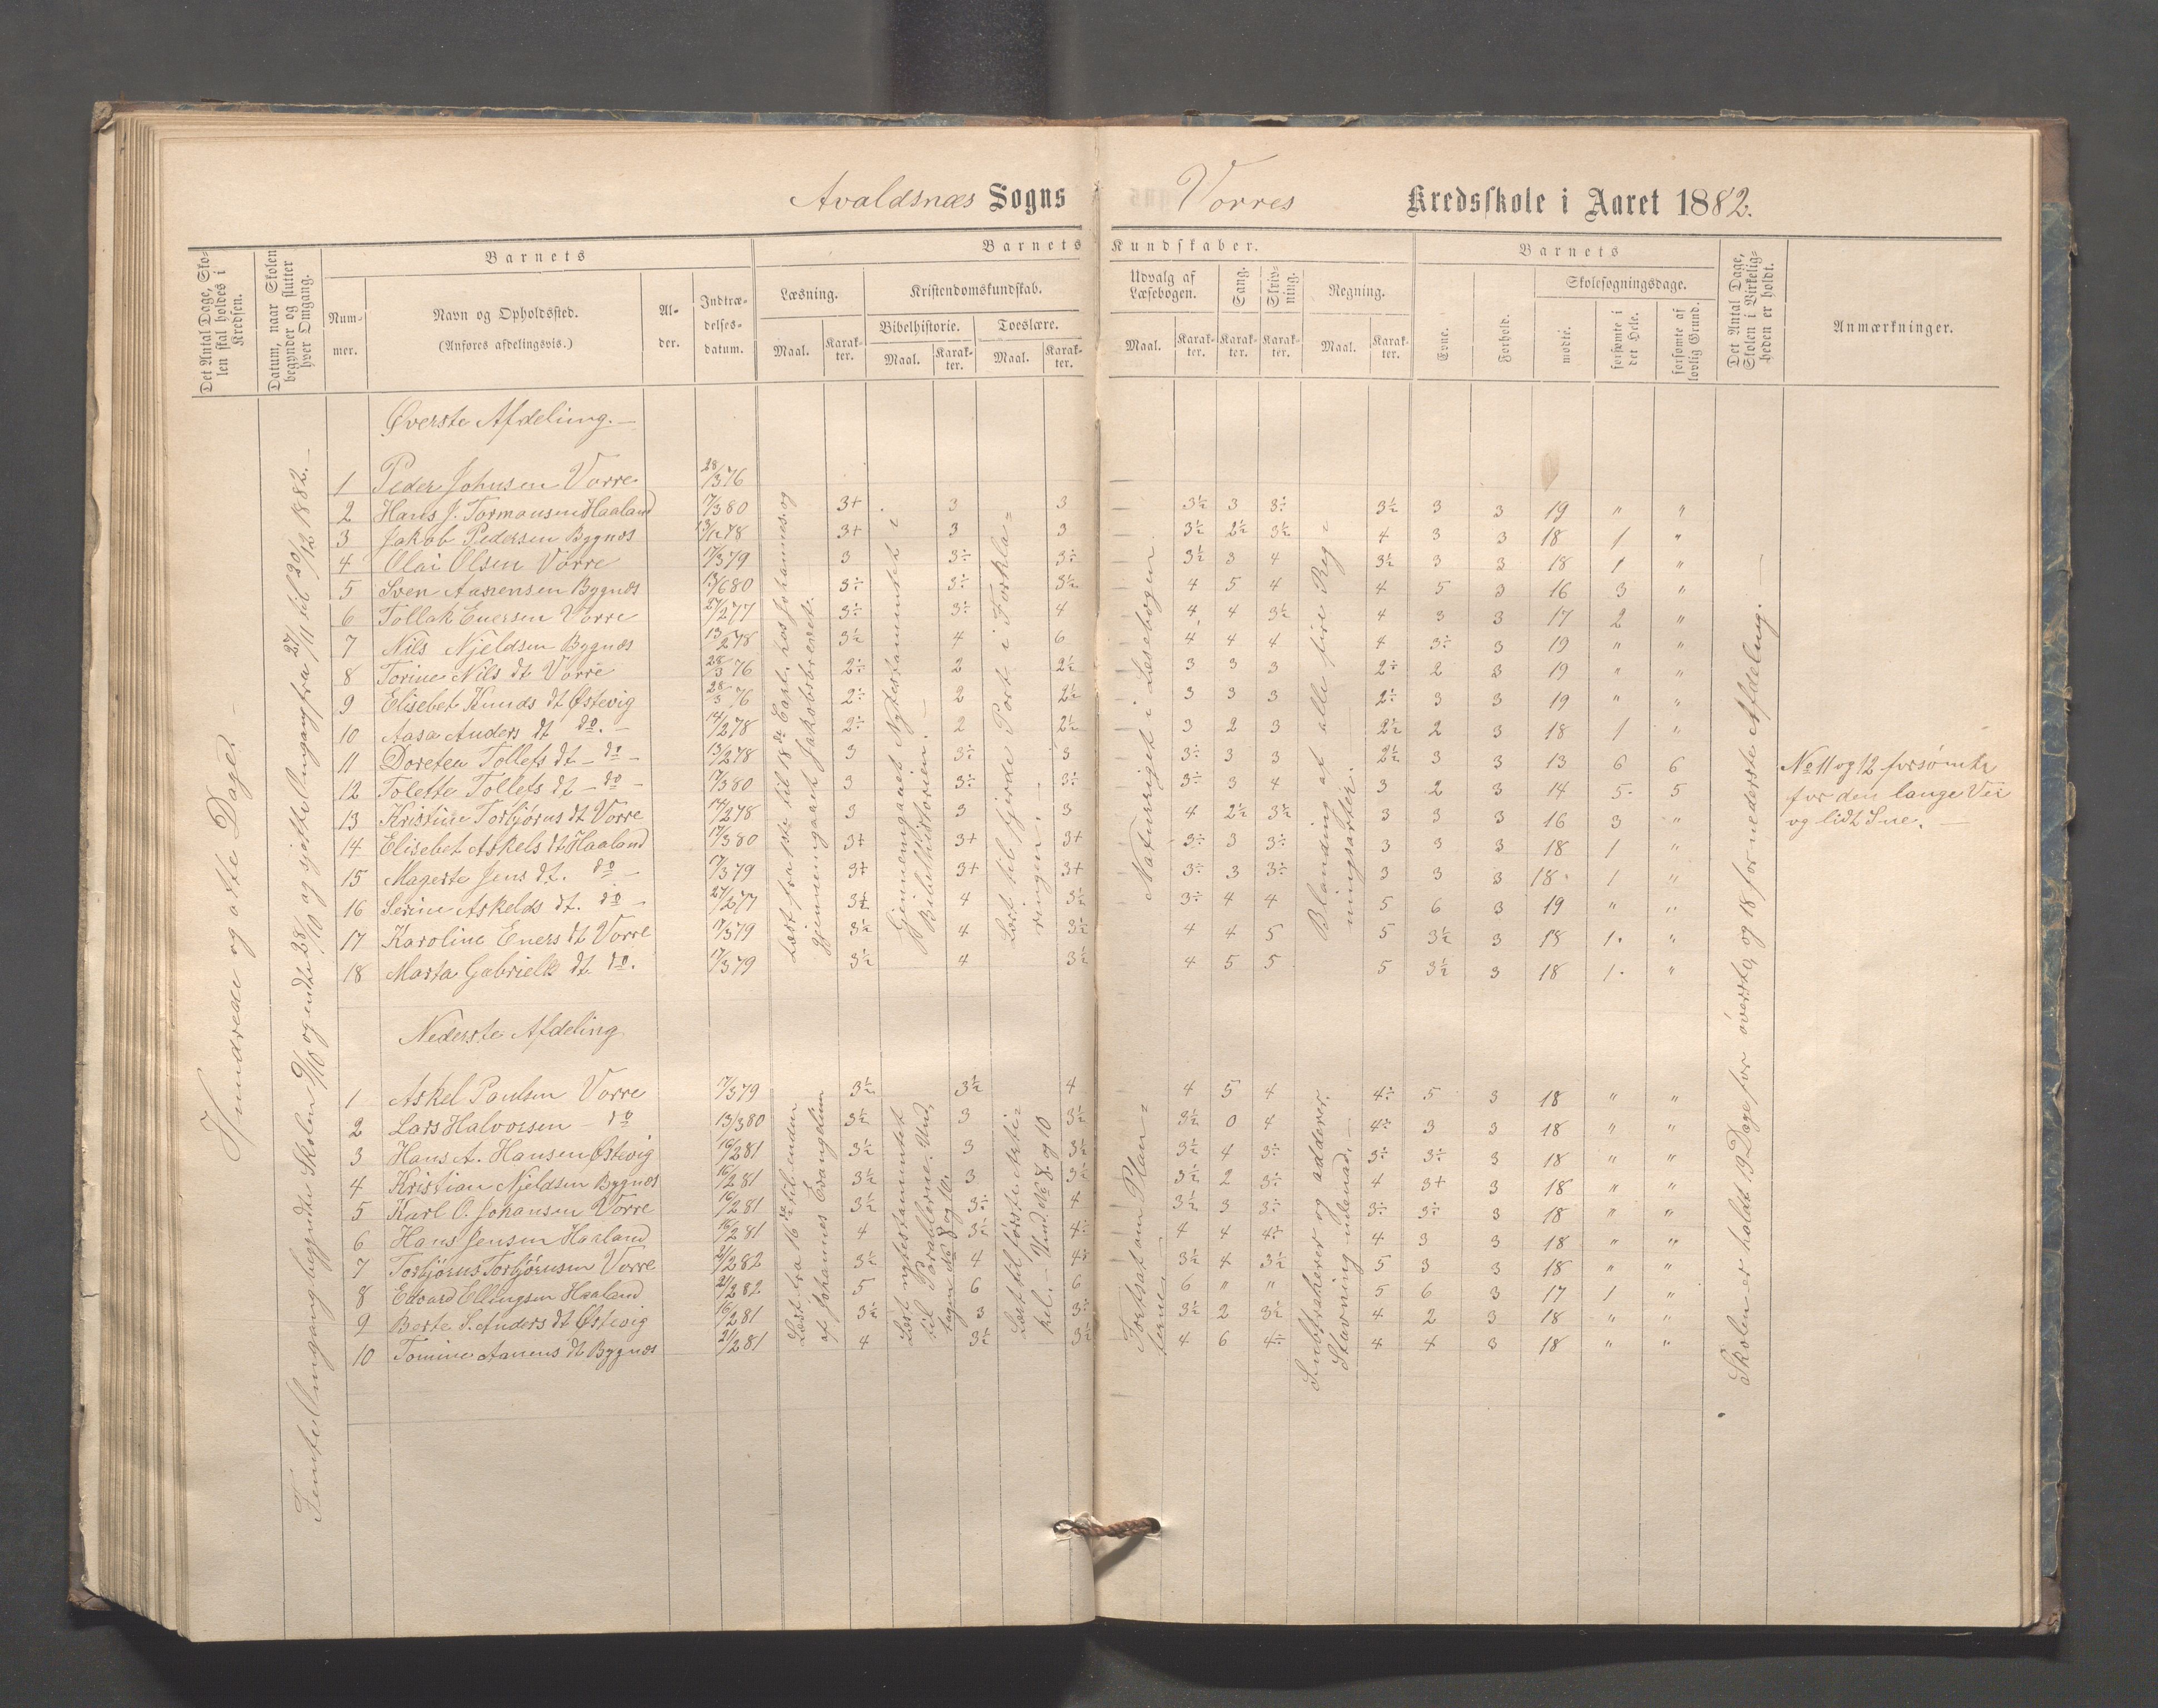 Avaldsnæs Sogns Vorres Kredsskole i Aaret 1882.
Det Antal Dage, Skolen skal holdes i Kredsen.
Datum, naar Skolen begynder og slutter hver Omgang.
Barnets
Nummer.
Navn og Opholdssted.
(Anføres afdelingsvis.)
Alder.
Indtrædelsesdatum.
Barnets Kundskaber.
Læsning.
Maal. Karakter.
Kristendomskundskab.
Bibelhistorie. Maal. Karakter.
Troeslære. Maal. Karakter.
Udvalg af Læsebogen. Maal. Karakter.
Sang. Karakter.
Skrivning. Karakter.
Regning. Maal. Karakter.
Barnets
Evne.
Forhold.
Skolesøgningsdage.
mødte.
forsømte i det Hele.
forsømte af lovlig Grund.
Det Antal Dage, Skolen i Virkeligheden er holdt.
Anmærkninger.
Hundrede og otte Dage.
og sjette Omgang fra 27/11 til 20/12 1882.
Øverste Afdeling.
1 Peder Johnsen Vorre 28/3 76
2 Hans J. Tormousen Haaland 17/3 80 3+ 3 3 3½ 3 3÷ 3½ 3 3 19 " "
3 Jakob Pedersen Bygnæs 13/12 78 3+ 3 3 3½ 2½ 3½ 4 3 3 18 1 "
4 Olai Olsen Vorre 17/3 79 3 3÷ 3÷ 3½ 3 4 3½ 3 3 18 1 "
5 Sven Aanensen Bygnæs 13/6 80 3÷ 3÷ 3½ 4 5 4 4 5 3 16 3 "
6 Tollak Enersen Vorre 27/2 77 3÷ 3÷ 4 4 4 3½ 4 3 3 17 2 "
7 Nils Njeldsen Bygnæs 13/2 78 3½ 4 6 4 4 4 4 3÷ 3 19 " "
8 Torine Nils dt Vorre 28/3 76 2÷ 2 2½ 3 3 3 2÷ 2 3 19 " "
9 Elisebet Knuds dt Østevig 28/3 76 2÷ 2 2½ 3 3 3 2÷ 3 3 19 " "
10 Aasa Anders dt do. 14/2 78 2÷ 2 2½ 3 2 3 2½ 2 3 18 1 "
11 Doretea Tollefs dt - do - 13/2 78 3 3÷ 3 3÷ 3 3 2½ 3 3 13 6 6 No 11 og 12 forsømte
12 Tolette Tollefs dt - do - 17/3 80 3 3÷ 3÷ 3÷ 3 4 3 2 3 14 5 5 for den lange Vei
13 Kristine Torbjørns dt Vorre 14/2 78 3 3 3 4 2½ 3½ 3 3 3 16 3 " og lidt Sne.
14 Elisebet Askels dt Haaland 17/3 80 3+ 3+ 3+ 3÷ 3 3÷ 3 3 3 18 1 "
15 Magerte Jens dt. do - 17/3 79 3+ 3+ 3+ 3÷ 3 3÷ 3 3 3 18 1 "
16 Serine Askelds dt. do - 27/2 77 3½ 4 3½ 3÷ 4 4 5 6 3 19 " "
17 Karoline Eners dt Vorre 17/3 79 3½ 4 3½ 4 4 5 5 3½ 3 18 1 "
18 Marta Gabriels dt do. 17/3 79 3½ 4 3½ 4 5 5 5 3½ 3 18 1 "
Gjennemgaaet Nytestamentet i Bibelhistorien.
Læst til fjerde Part i Forklaringen.
Naturriget i Læsebogen.
Blanding af alle fire Regningsarter.
Nederste Afdeling
1 Askel Paulsen Vorre 17/3 79 3½ 3½ 4 4 5 4 4÷ 5 3 18 " "
2 Lars Halvorsen - do 13/3 80 3½ 3 3½ 3½ 0 4 4÷ 3 3 18 " "
3 Hans A. Hansen Østevig 16/2 81 3½ 3 3½ 3½ 4 3÷ 3÷ 3÷ 3 18 " "
4 Kristian Njeldsen Bygnæs 16/2 81 3½ 3 3½ 3½ 2 3÷ 4 3+ 3 18 " "
5 Karl O. Johansen Vorre 16/2 81 3½ 3÷ 4 3½ 3 3÷ 3÷ 3÷ 3 18 " "
6 Hans Jensen Haaland 16/2 81 4 3½ 4÷ 4 4 4÷ 4 3 3 18 " "
7 Torbjørns Torbjørnsen Vorre 21/2 82 3½ 4 4÷ 3½ 4 3½ 5 3 3 18 " "
8 Edvard Ellingsen Haaland 21/2 82 5 6 6 6 " " 5 6 3 17 1 "
9 Berte S. Anders dt Østevig 16/2 81 3½ 3 3÷ 3½ 2 3½ 4 2 3 18 " "
10 Tomine Aanens dt Bygnæs 21/2 81 4 3½ 3½ 4 6 4÷ 4 4 3 18 " "
Læst fra 16de til enden af Johannes Evangelium
Læst til første Artikel. - Und. No 8. og 10
Fortsat om Planterne.
Subtraherer og adderer. Stavning udenad.
Skolen er holdt 19 Dage for øverste, og 18 for nederste Afdeling.